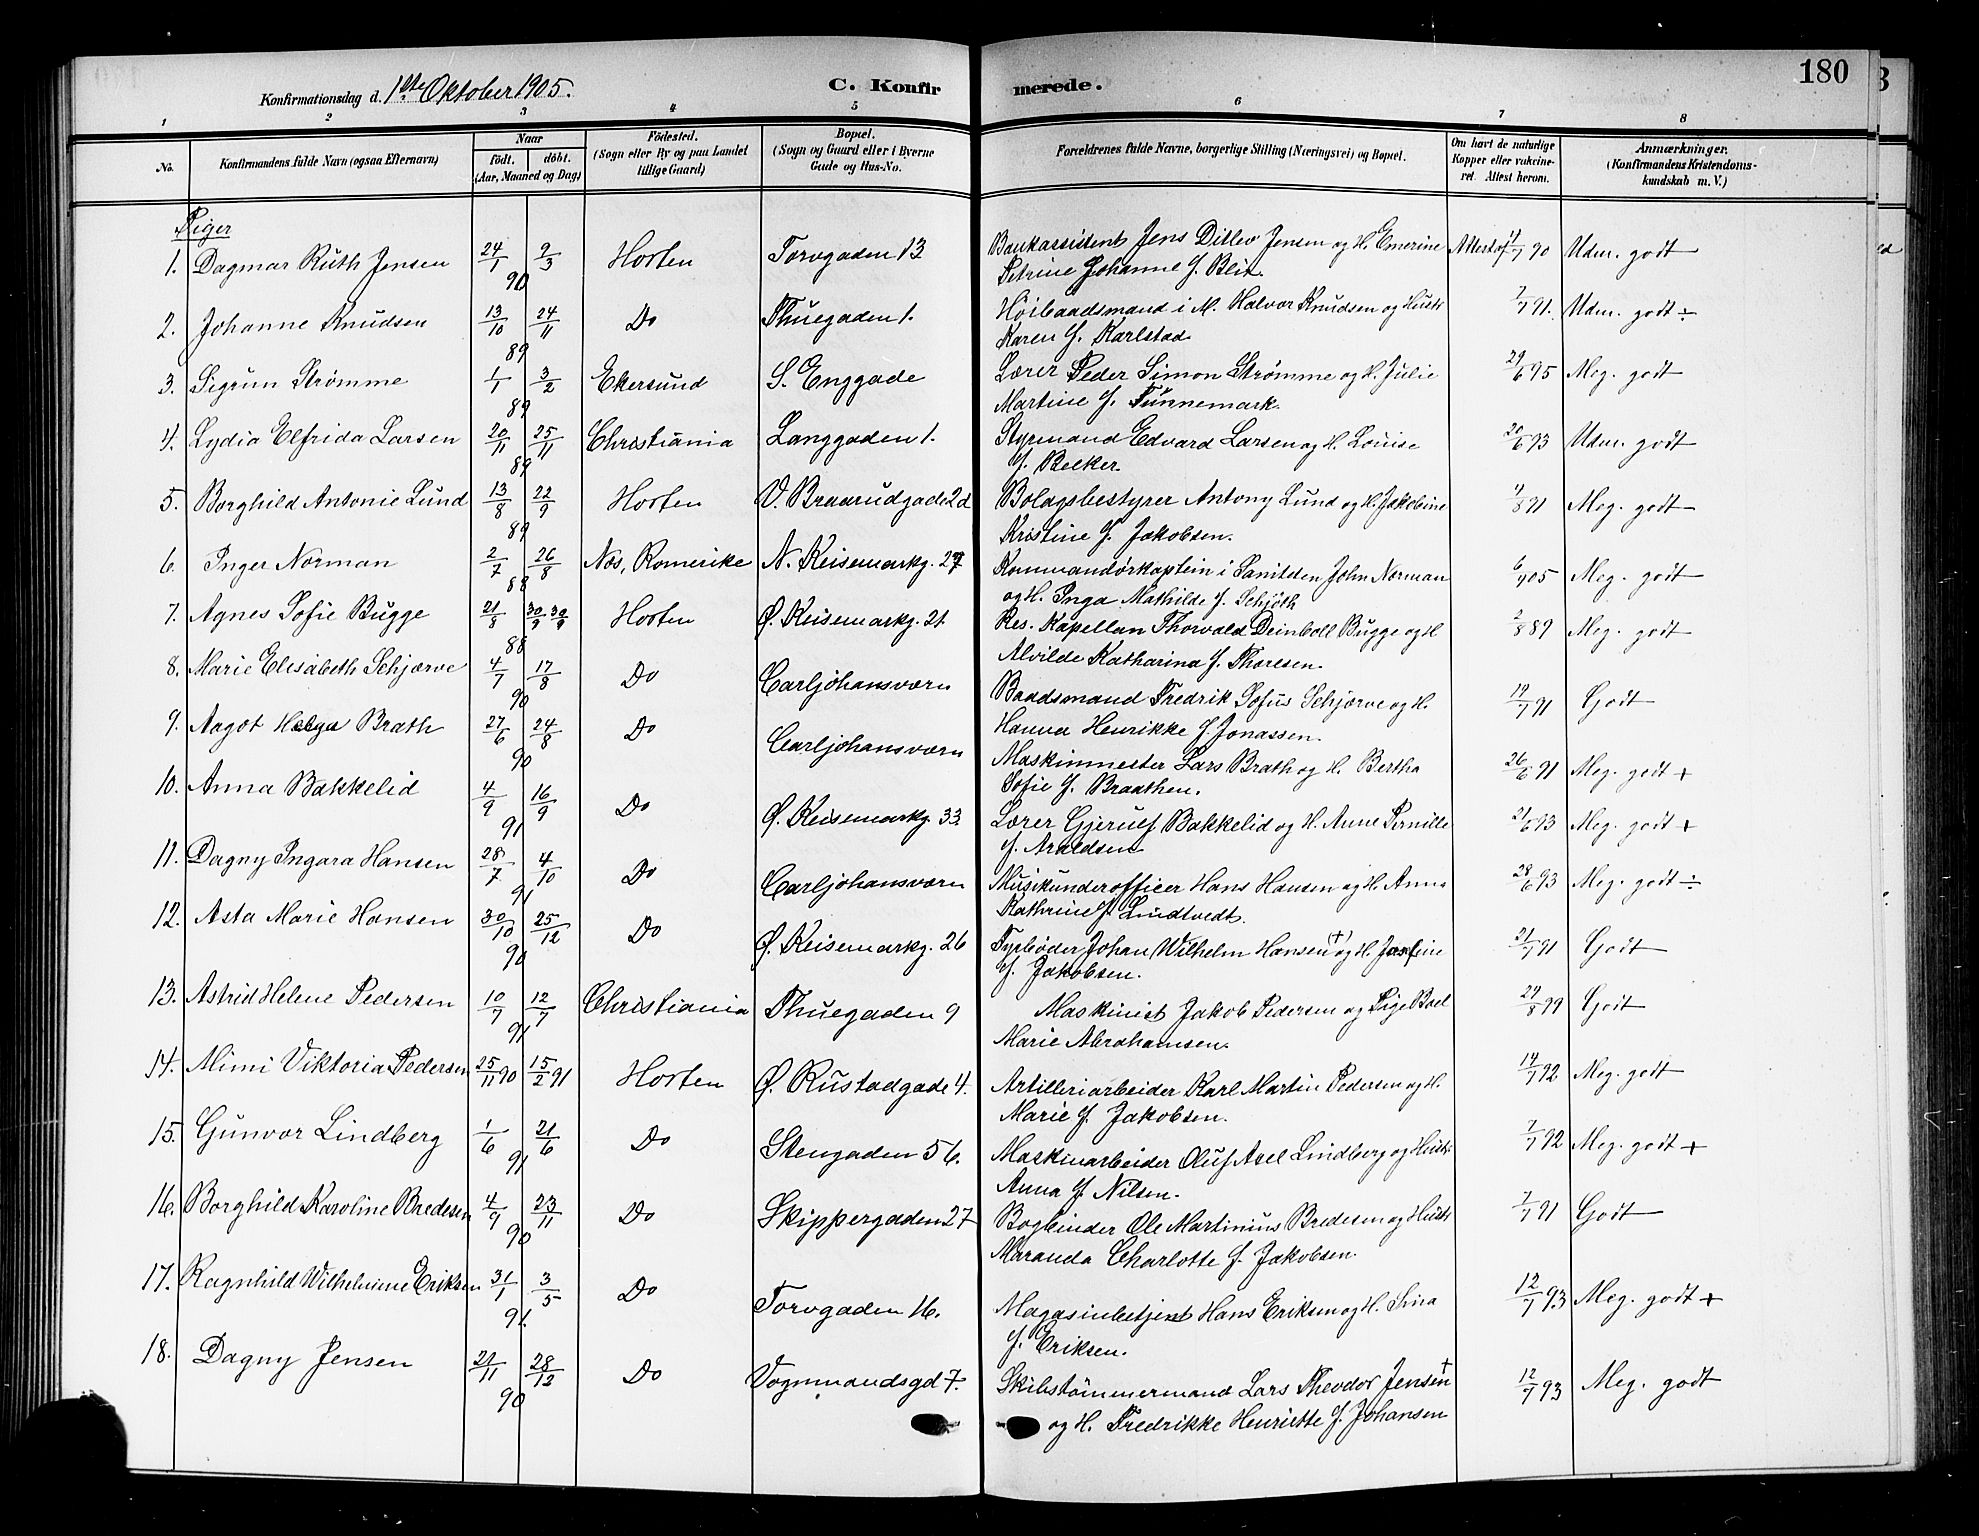 180
Konfirmationsdag d. 1ste Oktober 1905.
C. Konfirmerede.
1 2 3 4 5 6 7 8
No.
Konfirmandens fulde Navn (ogsaa Efternavn)
Naar
födt. döbt.
(Aar, Maaned og Dag)
Födested.
(Sogn eller By og paa Landet
tillige Gaard)
Bopæl.
(Sogn og Gaard eller i Byerne
Gade og Hus-No.
Forældrenes fulde Navne, borgerlige Stilling (Næringsvei) og Bopæl.
Om havt de naturlige
Kopper eller vakcine-
ret. Attest herom.
Anmærkninger.
(Konfirmandens Kristendoms-
kundskab m. V.)
Piger
1. Dagmar Ruth Jensen 24/1 9/3 90 Horten Torvgaden 13 Bankassistent Jens Ditlev Jensen og H. Emerine Attest af 11/7 90 Udm. godt
Petrine Johanne f. Blix.
2. Johanne Knudsen 13/10 24/11 89 Do Thuegaden 1. Høibaadsmand i M. Halvor Knudsen og Hustr 7/7 91. Udm. godt ÷
Karen f. Karlstad
3. Sigrun Strømme 1/1 3/2 89 Ekersund S. Enggade Lærer Peder Simon Strømme og H. Julie 29/6 95 Meg. godt
Martine f. Tunnemark.
4. Lydia Elfrida Larsen 20/11 25/11 89 Christiania Langgaden 1. Styrmand Edvard Larsen og H. Louise 20/6 93 Udm. godt
f. Becker.
5. Borghild Antonie Lund 13/8 22/9 89 Horten V. Braarudgade 2d Bolagsbestyrer Antony Lund og H. Jakobine 4/8 91 Meg. godt
Kristine f. Jakobsen.
6. Inger Norman 2/7 26/8 88 Nes, Romerike N. Keisemarkg. 27 Kommandørkaptein i Saniteten John Norman 6/7 05 Meg. godt
og H. Inga Mathilde f. Schjøth
7. Agnes Sofie Bugge 21/8 30/9 30/9 88 Horten Ø. Keisemarkg. 21. Res. Kapellan Thorvald Deinboll Bugge og H 2/8 89 Meg. godt
Alvilde Katharina f. Thoresen.
8. Marie Elisabeth Schjørve 4/7 17/8 90 Do Carljohansværn Baadsmand Fredrik Sofus Schjørve og H. 19/7 91 Godt
Hanna Henrikke f. Jonassen.
9. Aagot Helga Brath 27/6 24/8 90 Do Carljohansværn Maskinmester Lars Brath og H. Bertha 26/6 91 Meg. godt +
Sofie f. Braathen.
10. Anna Bakkelid 4/9 16/9 91 Do Ø. Keisemarkg. 33. Lærer Gjerulf Bakkelid og H. Anne Pernille 21/6 93 Meg. godt +
f. Araldsen
11. Dagny Ingara Hansen 28/7 4/10 91 Do Carljohansværn Musikunderofficer Hans Hansen og H. Anna 28/6 93 Meg. godt ÷
Kathrine f. Lindtvedt.
12. Asta Marie Hansen 30/10 25/12 90 Do Ø. Keisemarkg. 26 Fyrbøder Johan Wilhelm Hansen + og H. Josefine 21/7 91 Godt
f. Jakobsen.
13. Astrid Helene Pedersen 10/7 12/7 91 Christiania Thuegaden 9 Maskinist Jakob Pedersen og Pige Boel 29/8 99 Godt
Marie Abrahamsen.
14. Mimi Viktoria Pedersen 25/11 90 15/2 91 Horten Ø. Rustadgade 4. Artilleriarbeider Karl Martin Pedersen og H. 14/7 92 Meg. godt
Marie f. Jakobsen.
15. Gunvor Lindberg 1/6 21/6 91 Do Stengaden 56. Maskinarbeider Oluf Axel Lindberg og Hustr 7/7 92 Meg. godt +
Anna f. Nilsen.
16. Borghild Karoline Bredesen 4/9 23/11 90 Do Skippergaden 27 Bogbinder Ole Martinius Bredesen og Hustr 7/7 91 Godt
Maranda Charlotte f. Jakobsen.
17. Ragnhild Wilhelmine Eriksen 31/1 3/5 91. Do Torvgaden 16. Magasinbetjent Hans Eriksen og H. Sina 12/7 93 Meg. godt +
f. Eriksen.
18. Dagny Jensen 21/11 28/12 90 Do Vognmandsgd 7. Skibstømmermand Lars Theodor Jensen + 12/7 93 Meg. godt
og H. Fredrikke Henriette f. Johansen